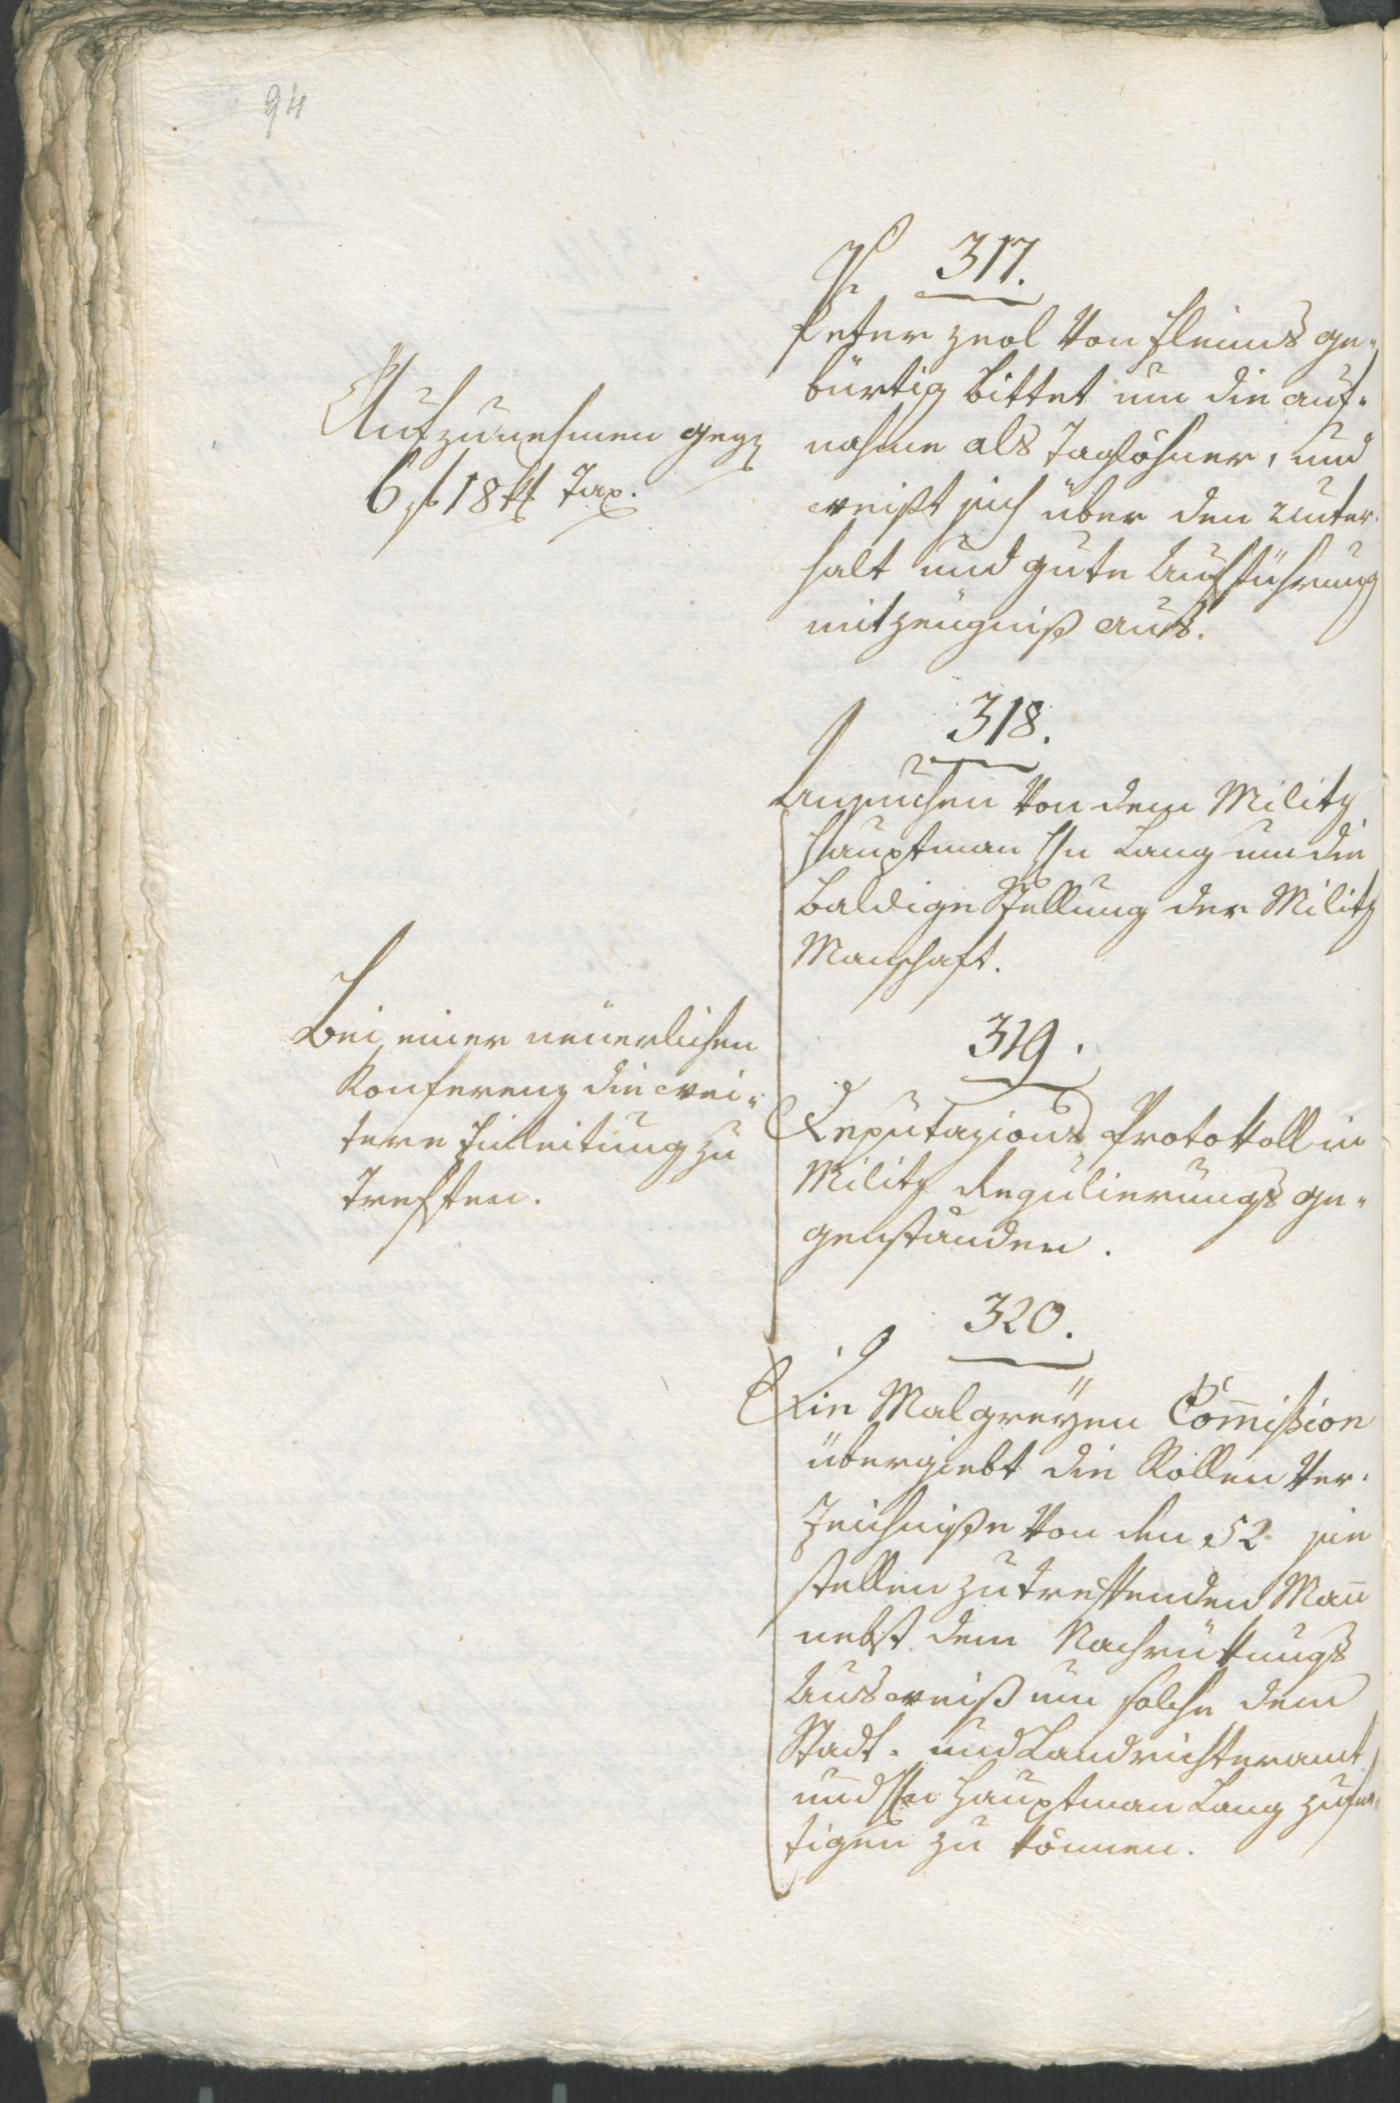 94
317.
Peter Zeol von Fleims ge-
bürtig bittet um die auf-
nahme als Taglöhner, und
weißt sich über den unter-
halt und gute Aufführung
mit Zeugniß aus.
Aufzunehmen gegen
6 f 18 xr Tax.
318.
Ansuchen von dem Militz
Hauptman Hn Lang um die
baldige Stellung der Militz
Manschaft.
319.
Deputazions Protokoll in
Militz Regulierungs ge-
genstanden.
Bei einer neuerlichen
Konferenz die wei-
tere Einleitung zu
treffen.
320.
Die Malgreÿen Com̄ission
übergiebt die Rollen Ver-
zeichniße von den 52 sie
stellen zu treffenden Man̄
nebst dem Nachrückungs
Ausweiß um solche dem
Stadt- und Landrichteramt
und Hn Hauptman Lang zufer-
tigen zu können.